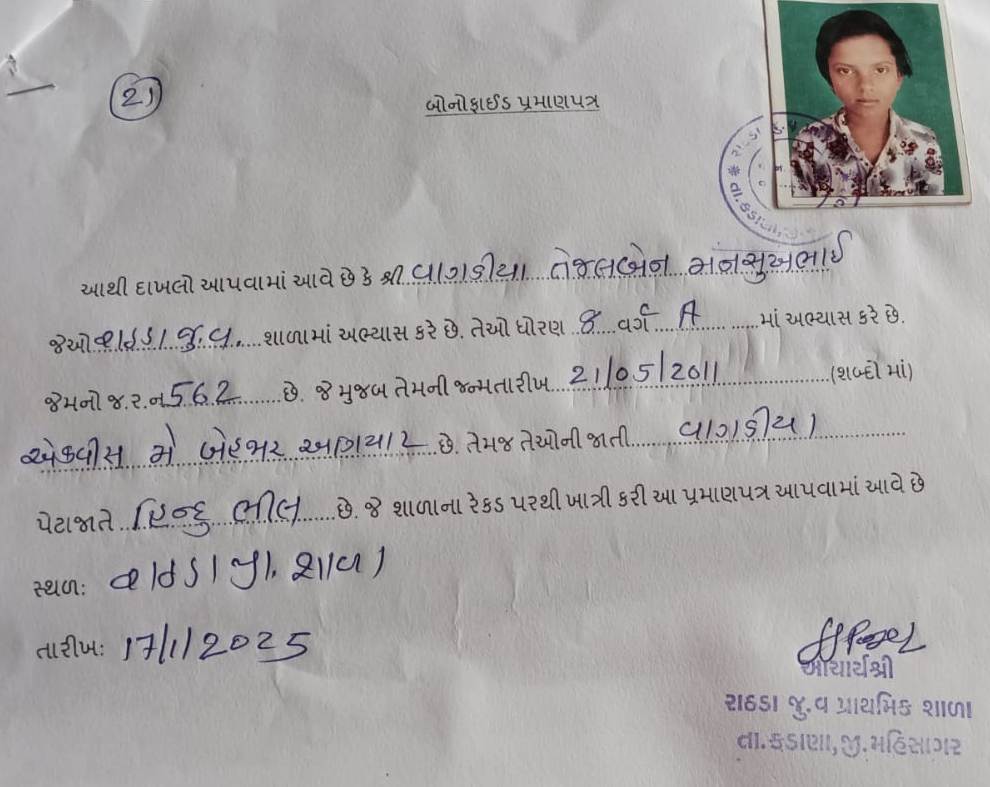 21
બોનોફાઈડ પ્રમાણપત્ર
આથી દાખલો આપવામાં આવે છે કે શ્રી વાગડીયા તેજલબેન મનસુખભાઈ
જેઓ રાઠડા જુ.વ. શાળામાં અભ્યાસ કરે છે. તેઓ ધોરણ ૪ વર્ગ A માં અભ્યાસ કરે છે.
જેમનો જ.ર.ન 562 છે. જે મુજબ તેમની જન્મતારીખ 21/05/2011 (શબ્દો માં)
એકવીસ મે બેહજાર અગિયાર છે. તેમજ તેઓની જાતી વાગડીયા
પેટાજાતે હિન્દુ ભીલ છે. જે શાળાના રેકડ પરથી ખાત્રી કરી આ પ્રમાણપત્ર આપવામાં આવે છે
સ્થળ: રાઠડા પ્રા. શાળા
તારીખ: 17/1/2025
આચાર્યશ્રી
રાઠડા જુ.વ પ્રાથમિક શાળા
તા.કડાણા,જી.મહિસાગર